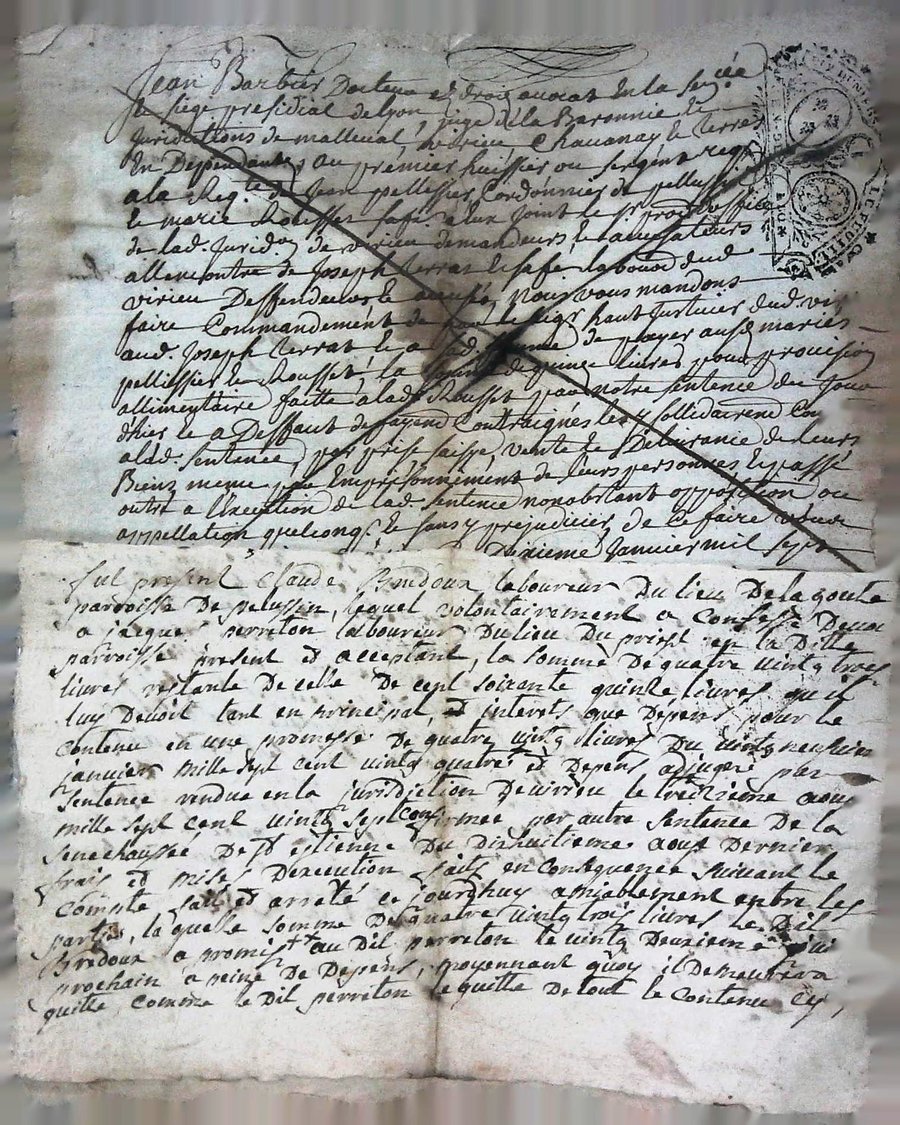 Jean Barbier Docteur et droit avocat en la Sen.ée
& siege presidial de Lyon, juge de la Baronnie &
Juridictions de malleval, virieu, Chavanay & terres
En Dependantes, au premier huissier ou sergent req
a la Req.te de Jean pellissier Cordonnier de pellussin
& marie Rousset sa fe. a eux joint le Sr. proc d'office
de lad. Jurid.on de virieu demandeurs & accusateurs
allencontre de Joseph terrat & sa fe. laboureur dud.
virieu Deffendeurs & accusés, Nous vous mandons
faire Commandement de par le seigr haut Justicier dud. vir
aud. Joseph terrat & a lad. femme de payer ausd. mariés
pellissier & Rousset la somme de quinze livres pour provision
allimentaire faitte a lad. Rousset par notre sentence du Jour
dhier & a Deffaut de payer Contraignés les y sollidairement
a lad. sentence, par prise saisie, vente & Delivrance de leurs
Biens meme par Emprisonnement de leurs personnes & passé
outre a l'execution de lad. sentence nonobstant opposition ou
appellation quelconq. & sans y prejudicier, de ce faire
Deuxieme Janvier mil sept
fut present Claude Bredoux laboureur Du lieu De la goutte
parroisse De pelussin, lequel volontairement a Confessé Devoir
a jacque perreton laboureur Du lieu Du priest en la Ditte
parroisse present et acceptant, la somme De quatre vingt trois
livres restante De celle De cent soixante quinze livres qu'il
luy Devoit tant en principal, et interets que Depens pour le
contenu en une promesse De quatre vingt livres Du vingt neufvieme
janvier mille sept cent vingt quatre et Depens adjugés par
sentence rendue en la jurisdiction De virieu le treizieme aoust
mille sept cent vingt sept confirmée par autre sentence De la
senechaussée De st etienne Du Dixhuitieme aoust Dernier
frais et mises Dexecution faits en consequence suivant le
compte fait et arreté ce jourdhuy amiablement entre les
parties, la quelle somme De quatre vingt trois livres le Dit
Bredoux a promis au Dit perreton le vingt Deuxieme
prochain a peine De Depens, moyennant quoy il Demeurera
quitte comme le Dit perreton le quitte De tout le contenu cy,